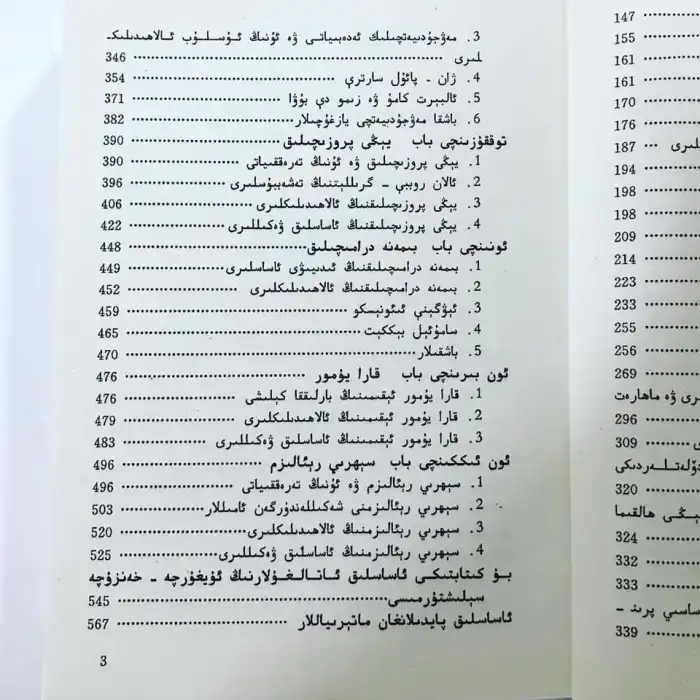 3. مەۋجۇدىيەتچىلىك ئەدەبىياتى ۋە ئۇنىڭ ئۇسلۇب ئالاھىدىلىك-
لىرى 346
4. ژان - پائۇل سارترې 354
5. ئالبېرت كامۇ ۋە زىمو دې بۇۋا 371
6. باشقا مەۋجۇدىيەتچى يازغۇچىلار 382
توققۇزىنچى باب يېڭى پروزىچىلىق 390
1. يېڭى پروزىچىلىق ۋە ئۇنىڭ تەرەققىياتى 390
2. ئالان روبېي - گرىللېتنىڭ تەشەببۇسلىرى 396
3. يېڭى پروزىچىلىقنىڭ ئالاھىدىلىكلىرى 406
4. يېڭى پروزىچىلىقنىڭ ئاساسلىق ۋەكىللىرى 422
ئونىنچى باب بىمەنە درامىچىلىق 448
1. بىمەنە درامىچىلىقنىڭ ئىدىيىۋى ئاساسلىرى 449
2. بىمەنە درامىچىلىقنىڭ ئالاھىدىلىكلىرى 452
3. ئېۋگېنې ئىئونېسكو 459
4. سامۇئېل بېككېت 465
5. باشقىلار 470
ئون بىرىنچى باب قارا يۇمور 476
1. قارا يۇمور ئېقىمىنىڭ بارلىققا كېلىشى 476
2. قارا يۇمور ئېقىمىنىڭ ئالاھىدىلىكلىرى 479
3. قارا يۇمور ئېقىمىنىڭ ئاساسلىق ۋەكىللىرى 483
ئون ئىككىنچى باب سېھرىي رېئالىزم 496
1. سېھرىي رېئالىزم ۋە ئۇنىڭ تەرەققىياتى 496
2. سېھرىي رېئالىزمنى شەكىللەندۈرگەن ئامىللار 503
3. سېھرىي رېئالىزمنىڭ ئالاھىدىلىكلىرى 520
4. سېھرىي رېئالىزمنىڭ ئاساسلىق ۋەكىللىرى 525
بۇ كىتابتىكى ئاساسلىق ئاتالغۇلارنىڭ ئۇيغۇرچە - خەنزۇچە
سېلىشتۇرمىسى 545
ئاساسلىق پايدىلانغان ماتېرىياللار 567
3
147
155
161
161
170
176
187
194
198
198
209
214
223
233
255
256
269
ۋە ماھارەت
296
309
320
يېڭى ھالقىما
324
332
333
339